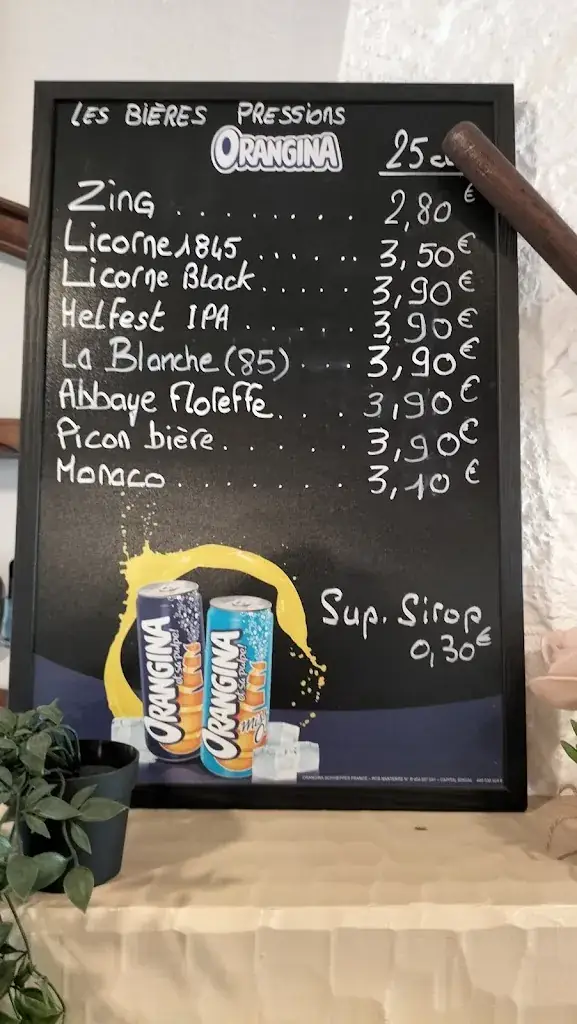 LES BIÈRES PRESSIONS
ORANGINA
25
Zing . . . . . . . . . 2,80 €
Licorne 1845 . . . . . . 3,50 €
Licorne Black . . . . . 3,90 €
Helfest IPA . . . . . 3,90 €
La Blanche (85) . . . 3,90 €
Abbaye Floreffe . . . 3,90 €
Picon bière . . . . . 3,90 €
Monaco . . . . . . . 3,10 €
Sup. Sirop
0,30 €
ORANGINA
et sa pulpe!
ORANGINA
et sa pulpe!